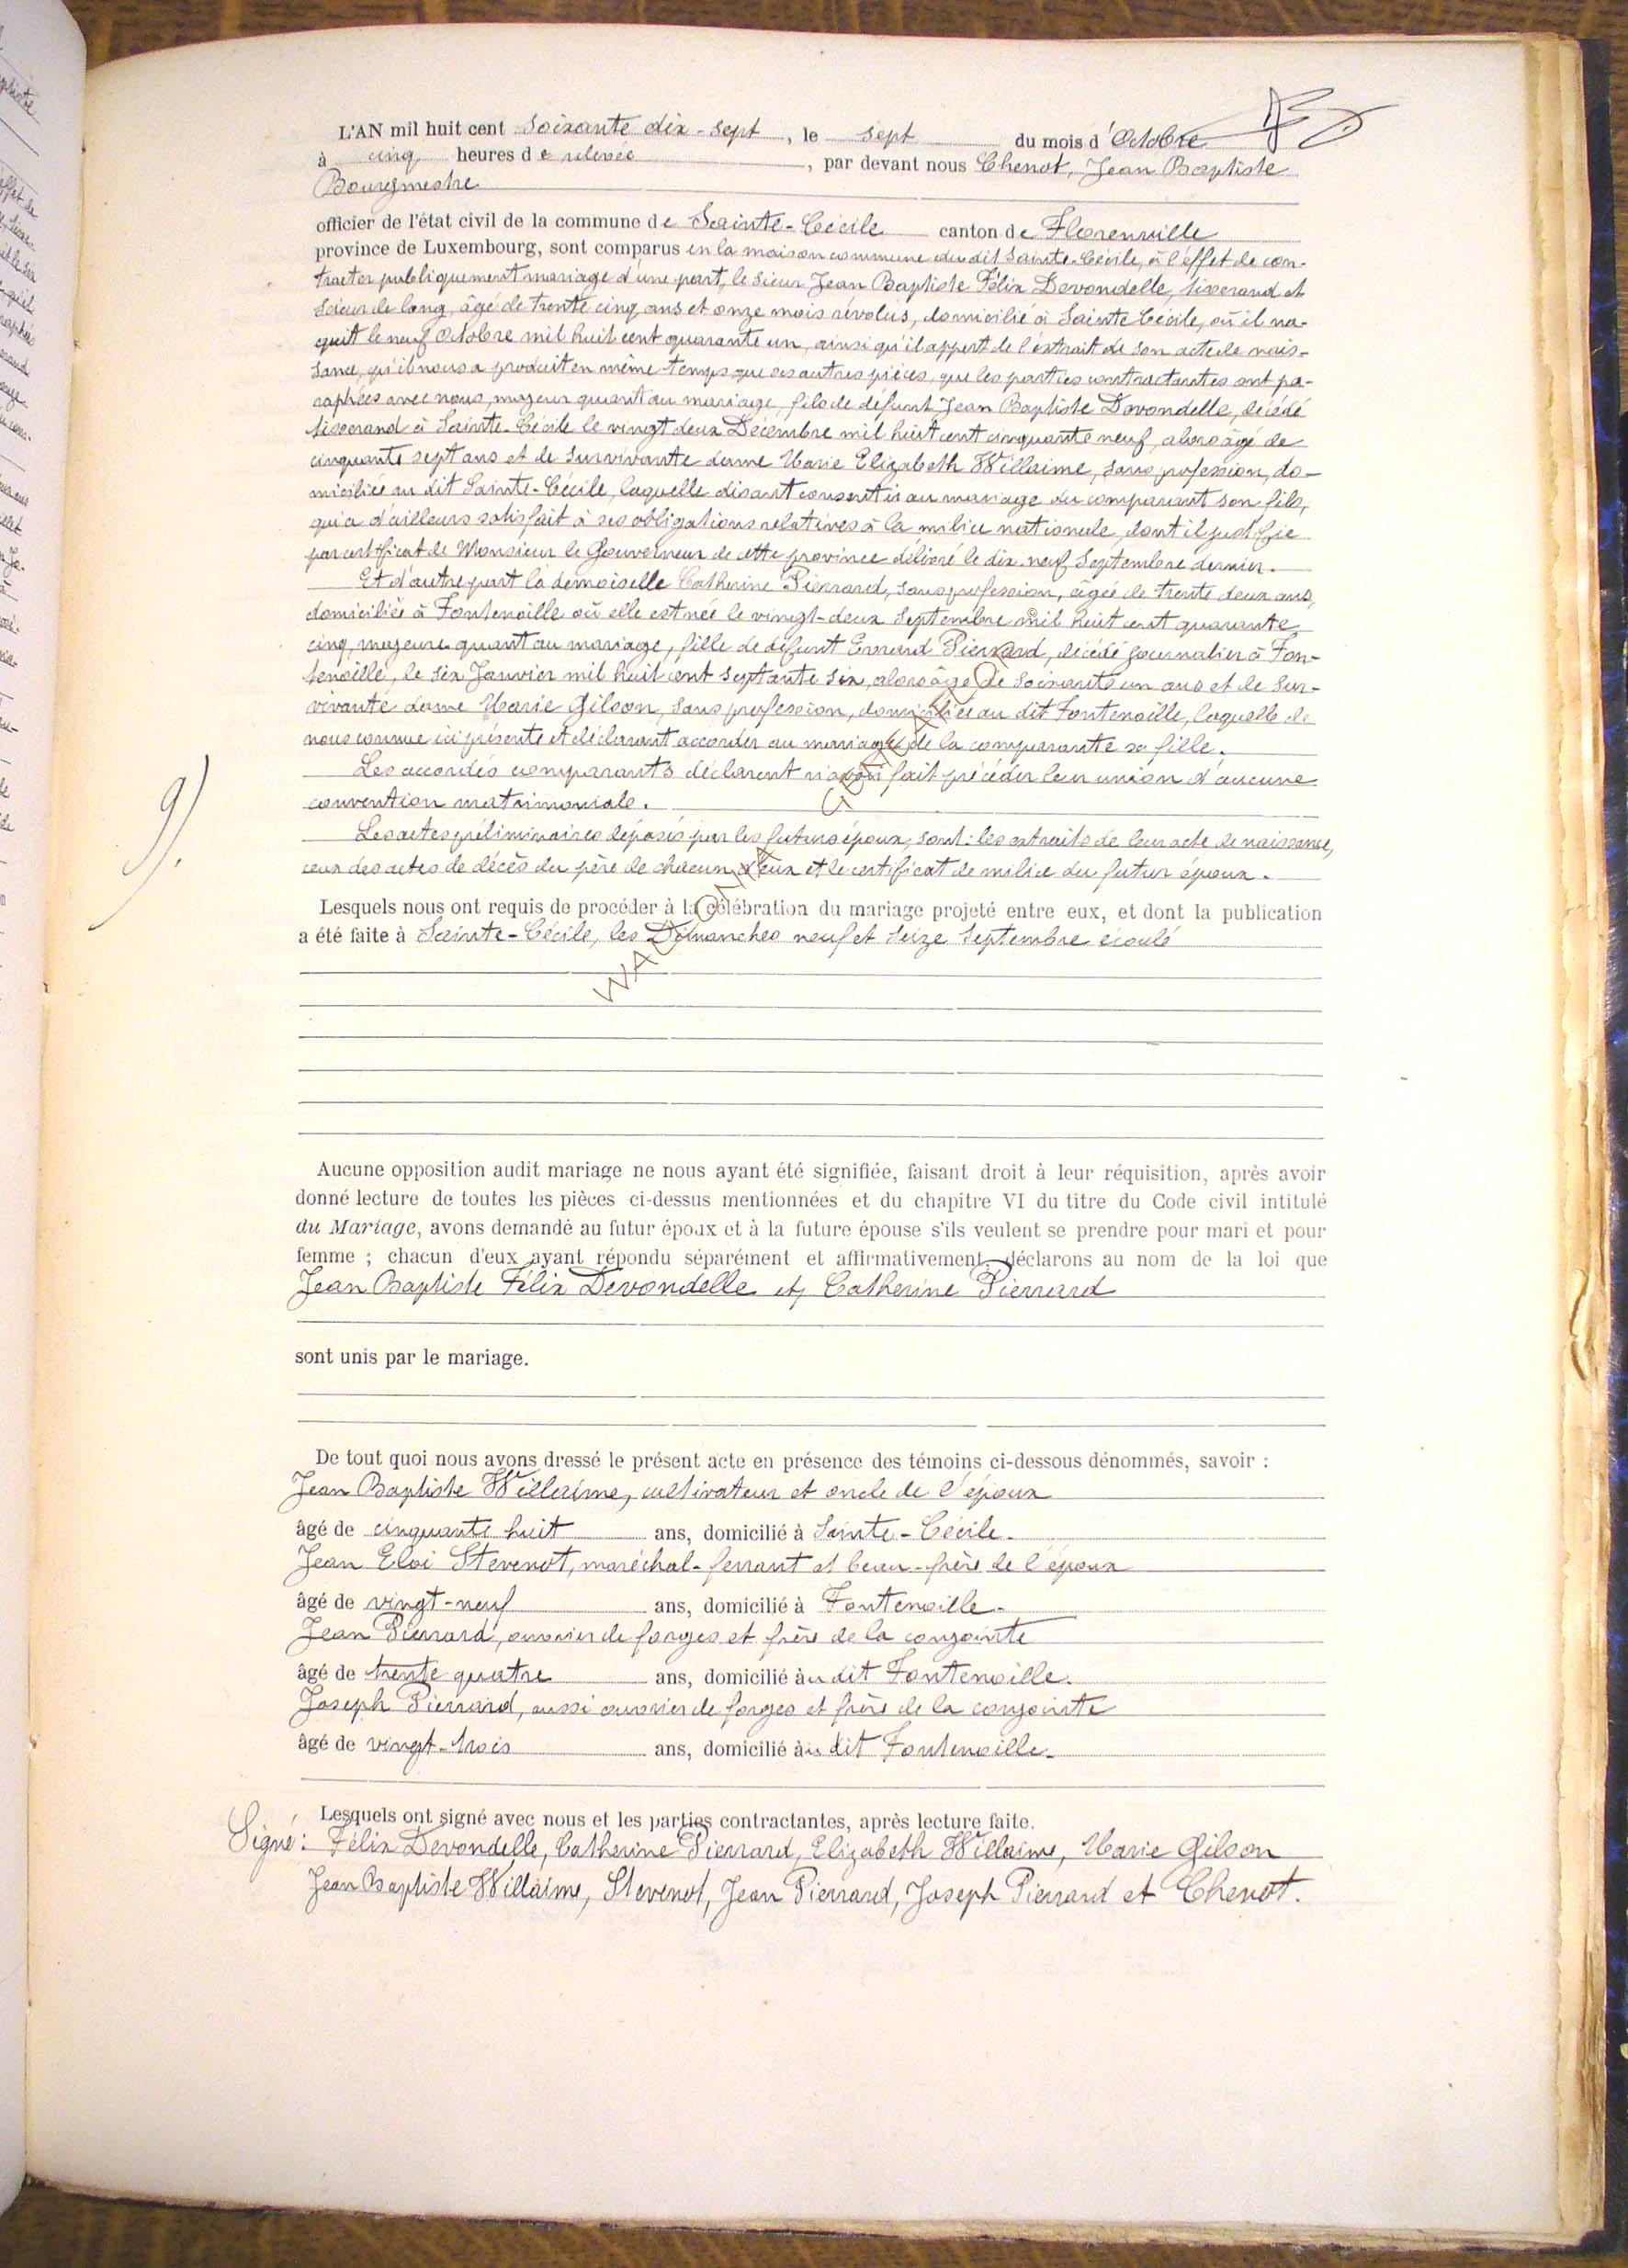 L'AN mil huit cent soixante dix-sept, le sept du mois d'Octobre
à cinq heures de relevée, par devant nous Chenot, Jean Baptiste
Bourgmestre
officier de l'état civil de la commune de Sainte-Cécile canton de Florenville
province de Luxembourg, sont comparus en la maison commune du dit Sainte-Cécile, à l'effet de con-
tracter publiquement mariage d'une part, le sieur Jean Baptiste Félix Devondelle, tisserand et
scieur de long, âgé de trente cinq ans et onze mois révolus, domicilié à Sainte Cécile, où il na-
quit le neuf Octobre mil huit cent quarante un, ainsi qu'il appert de l'extrait de son acte de nais-
sance, qu'il nous a produit en même-temps que ses autres pièces, que les parties contractantes ont pa-
raphées avec nous, majeur quant au mariage, fils de défunt Jean Baptiste Devondelle, décédé
tisserand à Sainte-Cécile le vingt deux Décembre mil huit cent cinquante neuf, alors âgé de
cinquante sept ans et de survivante dame Marie Elizabeth Willaime, sans profession, do-
miciliée au dit Sainte-Cécile, laquelle disant consentir au mariage du comparant son fils,
qui a d'ailleurs satisfait à ses obligations relatives à la milice nationale, dont il justifie
par certificat de Monsieur le Gouverneur de cette province délivré le dix neuf Septembre dernier.
Et d'autre part la demoiselle Catherine Pierrard, sans profession, âgée de trente deux ans,
domiciliée à Fontenoille où elle est née le vingt-deux Septembre mil huit cent quarante
cinq, majeure quant au mariage, fille de défunt Evrard Pierrard, décédé journalier à Fon-
tenoille, le six Janvier mil huit cent septante six, alors âgé de soixante un ans et de sur-
vivante dame Marie Gilson, sans profession, domiciliée au dit Fontenoille, laquelle de
nous connue ici présente et déclarant accorder au mariage de la comparante sa fille.
Les accordés comparants déclarent n'avoir fait précéder leur union d'aucune
convention matrimoniale.
9).
Les actes préliminaires déposés par les futurs époux, sont: les extraits de leur acte de naissance,
ceux des actes de décès du père de chacun d'eux et le certificat de milice du futur époux.
Lesquels nous ont requis de procéder à la célébration du mariage projeté entre eux, et dont la publication
a été faite à Sainte-Cécile, les Dimanches neuf et seize Septembre écoulé
Aucune opposition audit mariage ne nous ayant été signifiée, faisant droit à leur réquisition, après avoir
donné lecture de toutes les pièces ci-dessus mentionnées et du chapitre VI du titre du Code civil intitulé
du Mariage, avons demandé au futur époux et à la future épouse s'ils veulent se prendre pour mari et pour
femme ; chacun d'eux ayant répondu séparément et affirmativement, déclarons au nom de la loi que
Jean Baptiste Félix Devondelle et Catherine Pierrard
sont unis par le mariage.
De tout quoi nous avons dressé le présent acte en présence des témoins ci-dessous dénommés, savoir :
Jean Baptiste Willaime, cultivateur et oncle de l'époux
âgé de cinquante huit ans, domicilié à Sainte-Cécile.
Jean Eloi Stevenot, maréchal-ferrant et beau-frère de l'époux
âgé de vingt-neuf ans, domicilié à Fontenoille.
Jean Pierrard, ouvrier de forges et frère de la conjointe
âgé de trente quatre ans, domicilié au dit Fontenoille.
Joseph Pierrard, aussi ouvrier de forges et frère de la conjointe
âgé de vingt-trois ans, domicilié au dit Fontenoille.
Lesquels ont signé avec nous et les parties contractantes, après lecture faite.
Signé: Félix Devondelle, Catherine Pierrard, Elizabeth Willaime, Marie Gilson
Jean Baptiste Willaime, Stevenot, Jean Pierrard, Joseph Pierrard et Chenot.